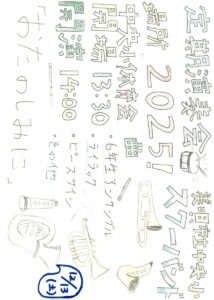 定期演奏会
2025!
美唄市立中央小
スクールバンド
場所
中央小体育館
開場 13:30
開演 14:00
曲
・6年生アンサンブル
・ライラック
・ピースサイン
・その他
12/13
(土)
おたのしみに!